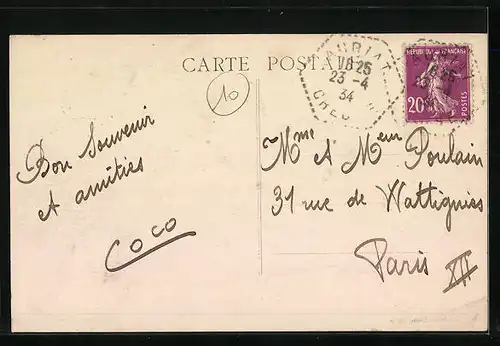 CARTE POSTA
AURIAT
18 25
23 -4
34
CREUSE
REPUBLIQUE FRANÇAISE
20c
POSTES
10
Bon Souvenir
et amitiés
Coco
Mme et Meur Poulain
31 rue de Wattignies
Paris XII